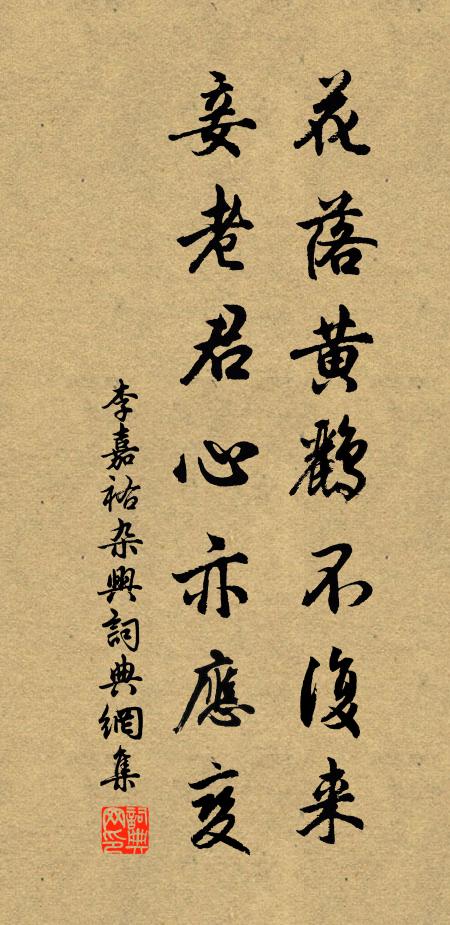 花落黄鸝不復来
妾老君心亦應变
李嘉祐杂興詞典網集
詞典网印